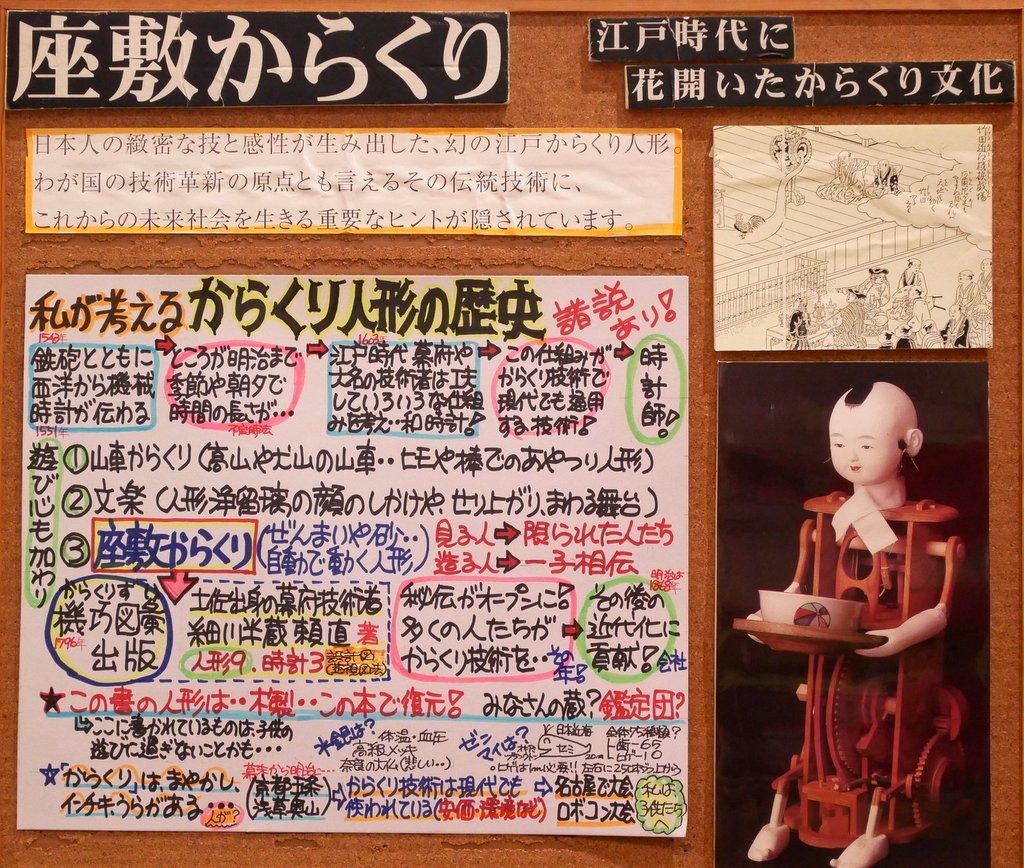 座敷からくり
江戸時代に
花開いたからくり文化
日本人の緻密な技と感性が生み出した、幻の江戸からくり人形。
わが国の技術革新の原点とも言えるその伝統技術に、
これからの未来社会を生きる重要なヒントが隠されています。
私が考えるからくり人形の歴史 諸説あり!
1543年
鉄砲とともに
西洋から機械
時計が伝わる
1551年
ところが明治まで
季節や朝夕で
時間の長さが…
不定時法
江戸時代 幕府や
大名の技術者は工夫
していろいろな仕組
みを考え‥和時計!
この仕組みが
からくり技術で
現代でも通用
する技術!
時計師!
遊び心も加わり
①山車からくり(高山や犬山の山車‥ヒモや棒でのあやつり人形)
②文楽(人形浄留璃の顔のしかけや、せり上がり、まわる舞台)
③座敷からくり(ぜんまいや砂‥自動で動く人形)
見る人➡限られた人たち
造る人➡一子相伝
からくりずい
機巧図彙
1796年
出版
土佐出身の幕府技術者
細川半蔵頼直 著
人形9、時計3
秘伝がオープンに!
多くの人たちが
からくり技術を‥
明治は
1868年
その後の
近代化に
貢献!
会社
★この書の人形は‥木製‥この本で復元!
みなさんの蔵?鑑定団?
↳ここに書かれているものは子供の
遊びで過ぎないことかも・・・
体温・血圧
高級メッキ
ゼンマイは?
★「からくり」はまやかし、
インチキうらがある…
人が?
幕末から明治…
浅草奥山
⇨からくり技術は現代でも
使われている(安価・環境など)
⇨名古屋で大会
ロボコン大会
私は
子供たち
へ